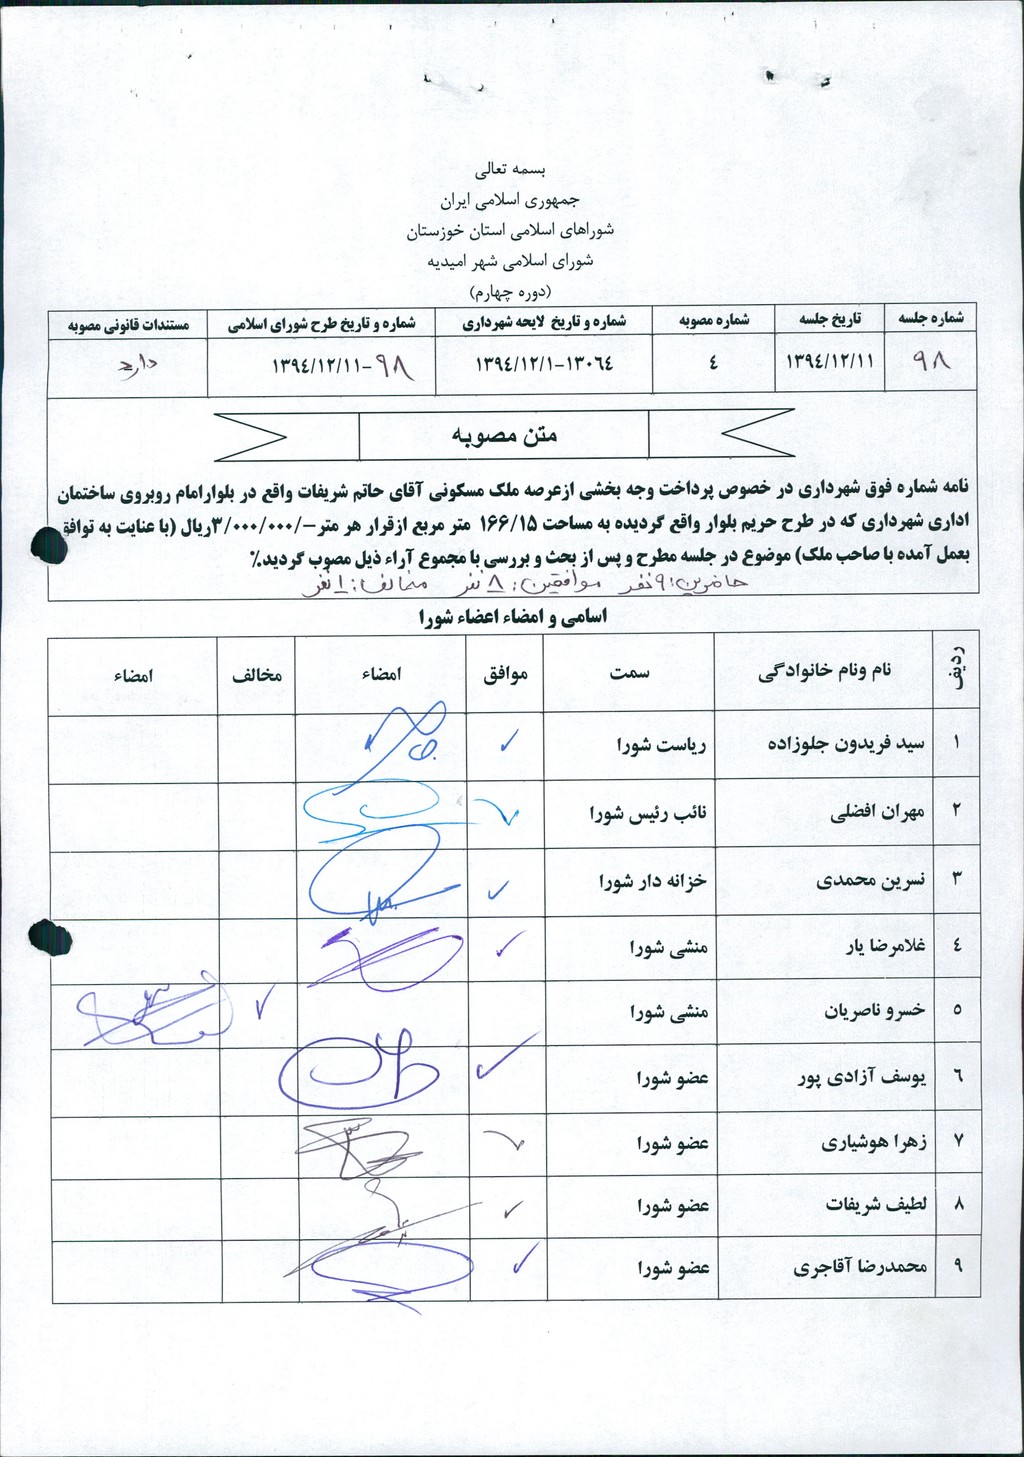 بسمه تعالی
جمهوری اسلامی ایران
شوراهای اسلامی استان خوزستان
شورای اسلامی شهر امیدیه
(دوره چهارم)
شماره جلسه تاریخ جلسه شماره مصوبه شماره و تاریخ لایحه شهرداری شماره و تاریخ طرح شورای اسلامی مستندات قانونی مصوبه
۹۸ ۱۳۹٤/۱۲/۱۱ ٤ ۱۳۹٤/۱۲/۱-۱۳۰٦٤ ۱۳۹٤/۱۲/۱۱-۹۸ دارد
متن مصوبه
نامه شماره فوق شهرداری در خصوص پرداخت وجه بخشی ازعرصه ملک مسکونی آقای حاتم شریفات واقع در بلوارامام روبروی ساختمان
اداری شهرداری که در طرح حریم بلوار واقع گردیده به مساحت ۱۶۶/۱۵ متر مربع ازقرار هر متر-/۳/۰۰۰/۰۰۰ریال (با عنایت به توافق
بعمل آمده با صاحب ملک) موضوع در جلسه مطرح و پس از بحث و بررسی با مجموع آراء ذیل مصوب گردید.٪
حاضرین: ۹ نفر موافقین: ۸ نفر مخالف: ۱ نفر
اسامی و امضاء اعضاء شورا
ردیف نام ونام خانوادگی سمت موافق امضاء مخالف امضاء
۱ سید فریدون جلوزاده ریاست شورا ✓
۲ مهران افضلی نائب رئیس شورا ✓
۳ نسرین محمدی خزانه دار شورا ✓
٤ غلامرضا یار منشی شورا ✓
٥ خسرو ناصریان منشی شورا ✓
٦ یوسف آزادی پور عضو شورا ✓
۷ زهرا هوشیاری عضو شورا ✓
۸ لطیف شریفات عضو شورا ✓
۹ محمدرضا آقاجری عضو شورا ✓